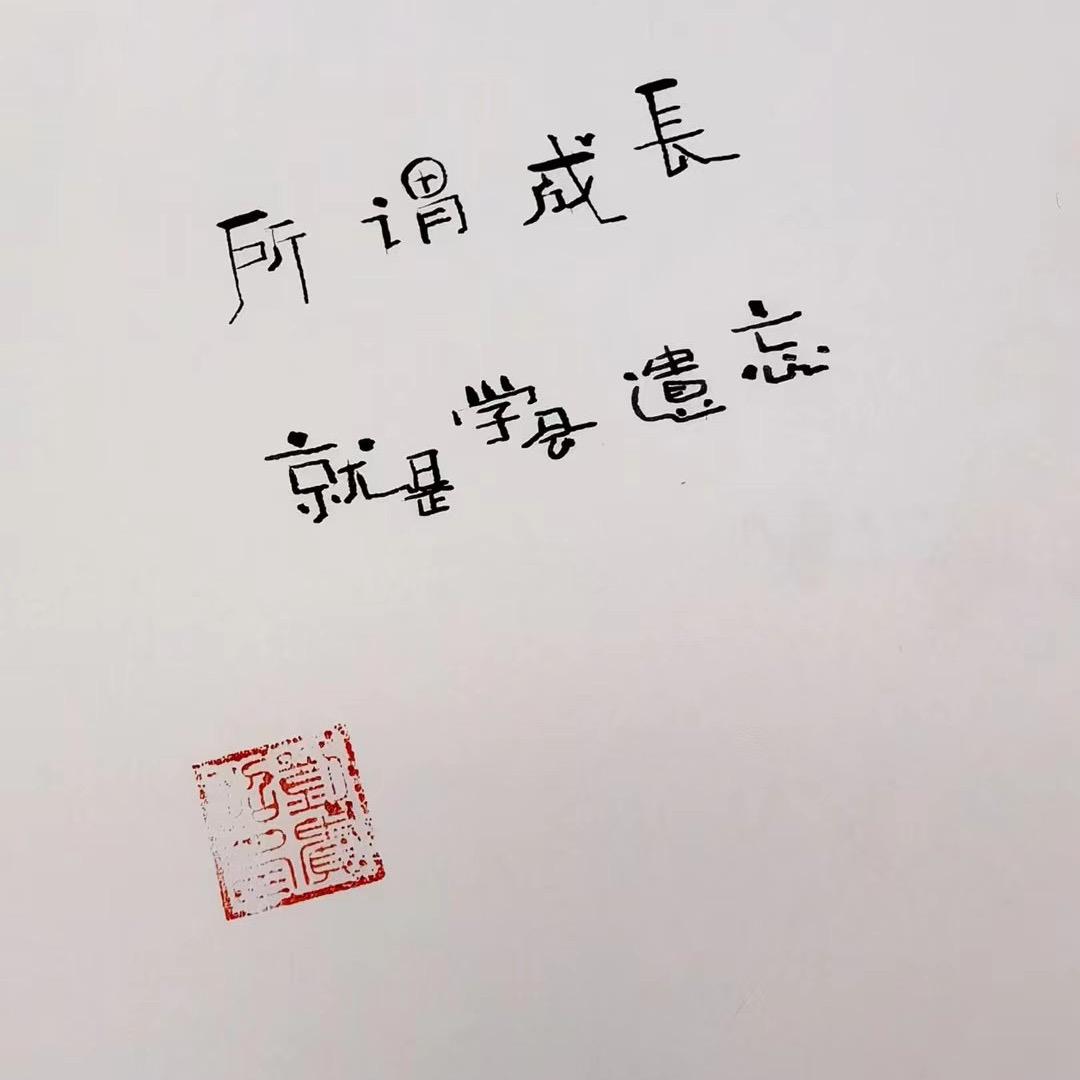 所谓成長
就是学会遺忘